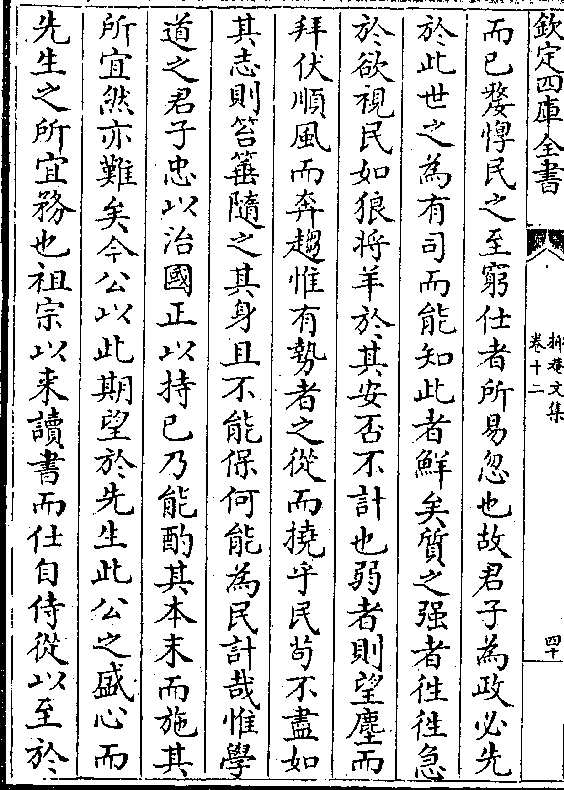 欽定四庫全書
卷十二
四十
而已嫠惸民之至窮仕者所易忽也故君子為政必先
於此世之為有司而能知此者鮮矣質之强者徃徃急
於欲視民如狼將羊於其安否不計也弱者則望塵而
拜伏順風而奔趨惟有勢者之從而撓乎民茍不盡如
其志則笞箠隨之其身且不能保何能為民計哉惟學
道之君子忠以治國正以持已乃能酌其本末而施其
所宜然亦難矣今公以此期望於先生此公之盛心而
先生之所宜務也祖宗以來讀書而仕自侍從以至於